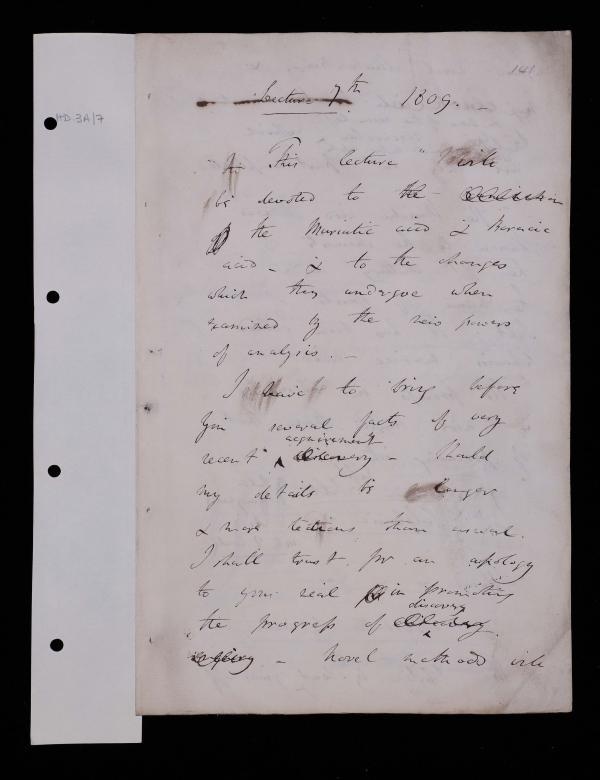 141
HD.3A/7
Lecture 7th 1809. -
This lecture will
be devoted to the
of the Muriatic acid & boracic
acid - & to the changes
which they undergo when
examined by the new powers
of analysis. -
I have to bring before
you several facts of very
acquirement
recent discovery - Should
my details be longer
& more tedious than usual.
I shall trust for an apology
to your zeal in promoting
discovery
the progress of
- Novel methods will